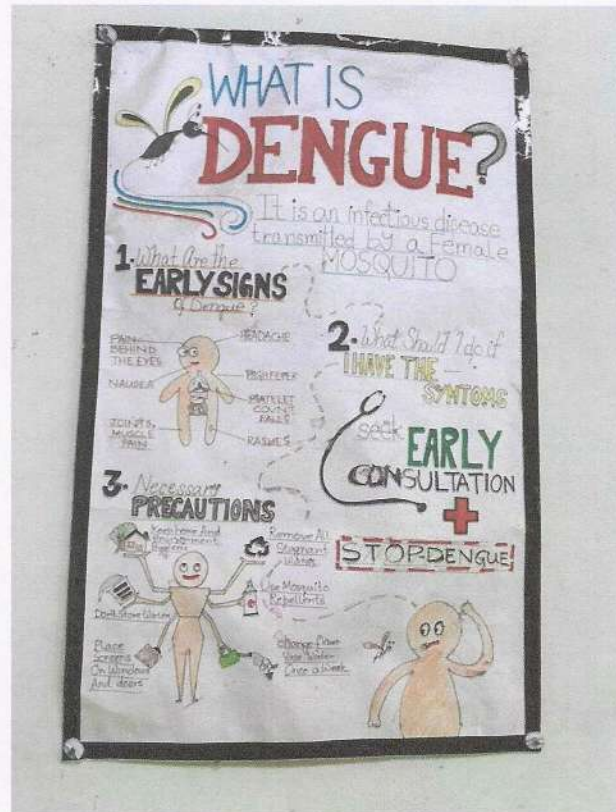 WHAT IS
DENGUE?
It is an infectious disease
transmitted by a Female
MOSQUITO
1. What Are the
EARLY SIGNS
of Dengue?
PAIN
BEHIND
THE EYES
NAUSEA
JOINTS,
MUSCLE
PAIN
HEADACHE
HIGH FEVER
PLATELET
COUNT
FALLS
RASHES
2. What Should I do if
I HAVE THE
SYNTOMS
seek EARLY
CONSULTATION
STOP DENGUE
3. Necessary
PRECAUTIONS
Keep home And
Environment
Don't Store Water
Place
Screens
On Windows
And doors
Remove All
Stagnant
Water
Use Mosquito
Repellents
Change flower
Vase Water
Once a Week